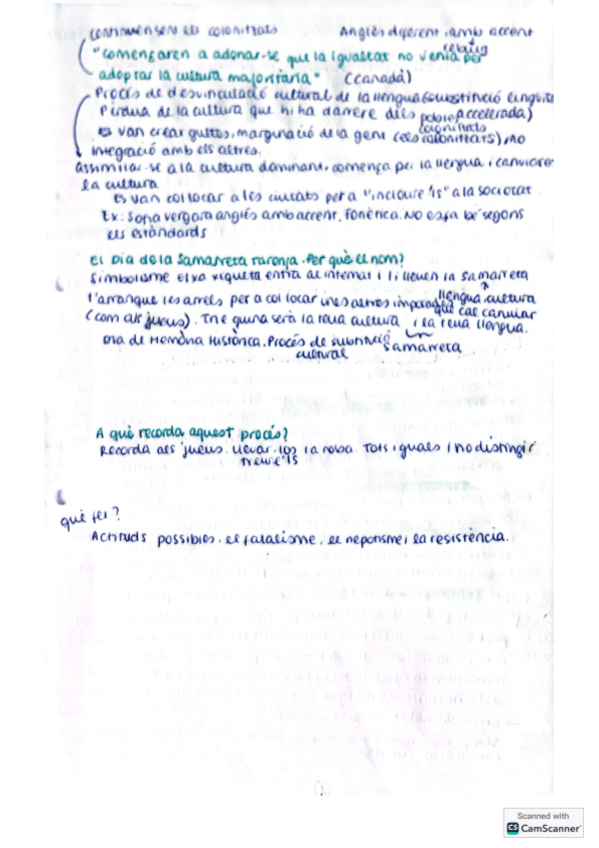 continuen sent els colonitzats Anglès diferent, amb accent
rebuig
"començaren a adonar-se que la igualtat no venia per
adoptar la cultura majoritària" (Canadà)
Procés de desvinculació cultural de la llengua (substitució lingüística
Pèrdua de la cultura que hi ha darrere dels pobles accelerada)
colonitzats
Es van crear guetos, marginació de la gent (els colonitzats), no
integració amb els altres.
assimilar-se a la cultura dominant, comença per la llengua i canviaren
la cultura
Es van col·locar a les ciutats per a "incloure'ls" a la societat
Ex: Sofia Vergara anglès amb accent. Fonètica. No està bé segons
els estàndards.
El Dia de la Samarreta taronja. Per què el nom?
Simbolisme eixa xiqueta entra al internat i li lleven la samarreta
l'arranquen les arrels per a col·locar unes altres
llengua, cultura
que cal canviar
(com als jueus). serà la teua cultura i la teua llengua.
Dia de Memòria Històrica. Procés de substitució
cultural samarreta
A què recorda aquest procés?
Recorda als jueus. Llevar-los la roba. Tots iguals i no distingir
treure'ls
què fer?
Actituds possibles. el fatalisme, el la resistència.
1
Scanned with
CS CamScanner